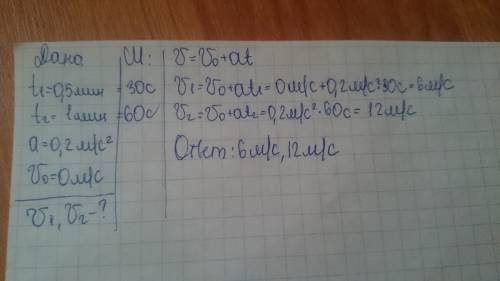 Дано
t₁=0,5мин
t₂=1мин
a=0,2м/с²
V₀=0м/с
V₁, V₂-?
СИ:
=30с
=60с
V=V₀+at
V₁=V₀+at₁=0м/с+0,2м/с²·30с=6м/с
V₂=V₀+at₂=0,2м/с²·60с=12м/с
Ответ: 6м/с, 12м/с